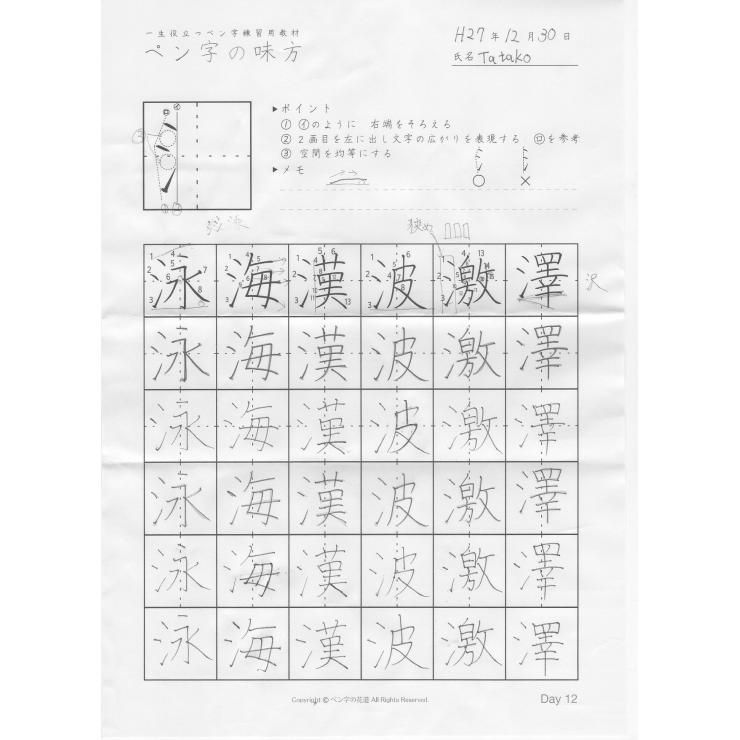 一生役立つペン字練習用教材
ペン字の味方
H27年12月30日
氏名 Tatako
▶ポイント
① ㋑のように 右端をそろえる
② 2画目を左に出し文字の広がりを表現する ㋺を参考
③ 空間を均等にする
▶メモ
○ ×
狭め
泳 海 漢 波 激 澤 沢
泳 海 漢 波 激 澤
泳 海 漢 波 激 澤
泳 海 漢 波 激 澤
泳 海 漢 波 激 澤
泳 海 漢 波 激 澤
Copyright © ペン字の花道 All Rights Reserved.
Day 12